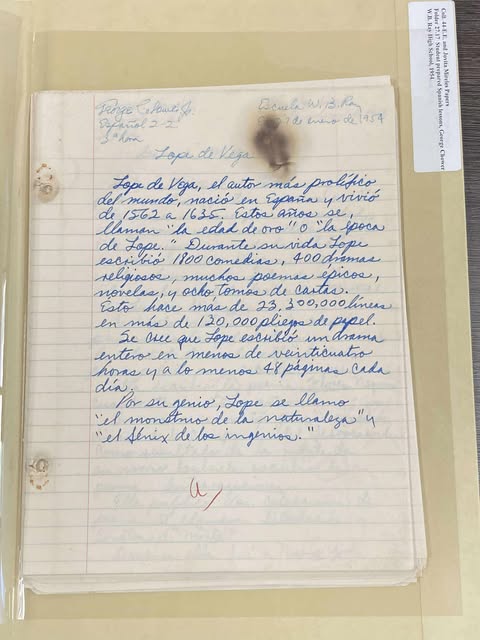 Coll. 44-E.E. and Jovita Mireles Papers
Folder 27.17 Student prepared Spanish lessons, George Clower
W.B. Ray High School, 1954.
George Jr.
Español 2-2
3ª hora
Escuela W. B. Ray
de enero de 1954
Lope de Vega
Lope de Vega, el autor más prolífico
del mundo, nació en España y vivió
de 1562 a 1635. Estos años se
llaman "la edad de oro" o "la época
de Lope." Durante su vida Lope
escribió 1800 comedias, 400 dramas
religiosos, muchos poemas épicos,
novelas, y ocho tomos de cartas.
Esto hace más de 23,300,000 líneas
en más de 120,000 pliegos de papel.
Se cree que Lope escribió un drama
entero en menos de veinticuatro
horas y a lo menos 48 páginas cada
día.
Por su genio, Lope se llamo
"el monstruo de la naturaleza" y
"el fénix de los ingenios."